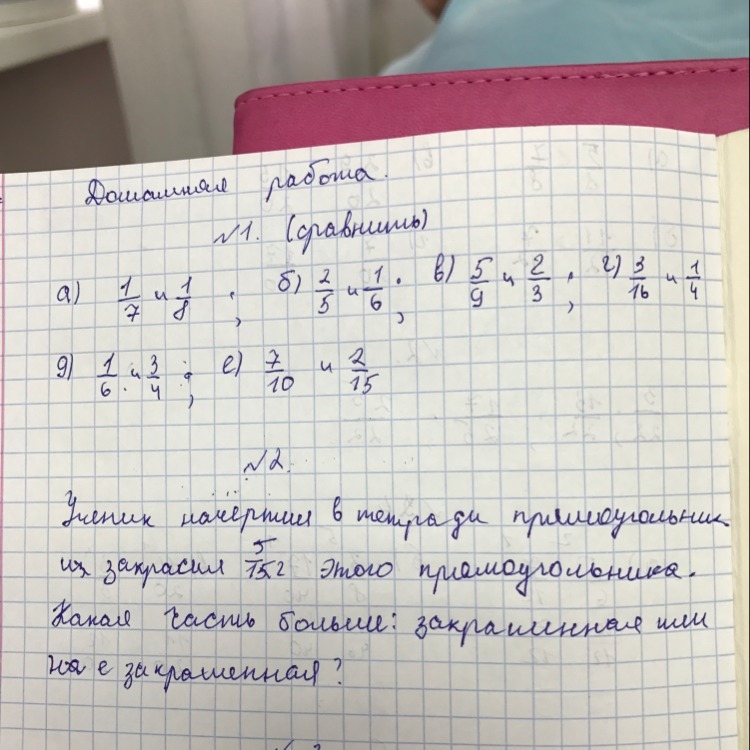 Домашняя работа.
№1. (сравнить)
а) 1/7 и 1/8 ; б) 2/5 и 1/6 ; в) 5/9 и 2/3 ; г) 3/16 и 1/4
д) 1/6 и 3/4 ; е) 7/10 и 2/15
№2.
Ученик начертил в тетради прямоугольник
закрасил этого прямоугольника.
Какая часть больше: закрашенная или
закрашенная?